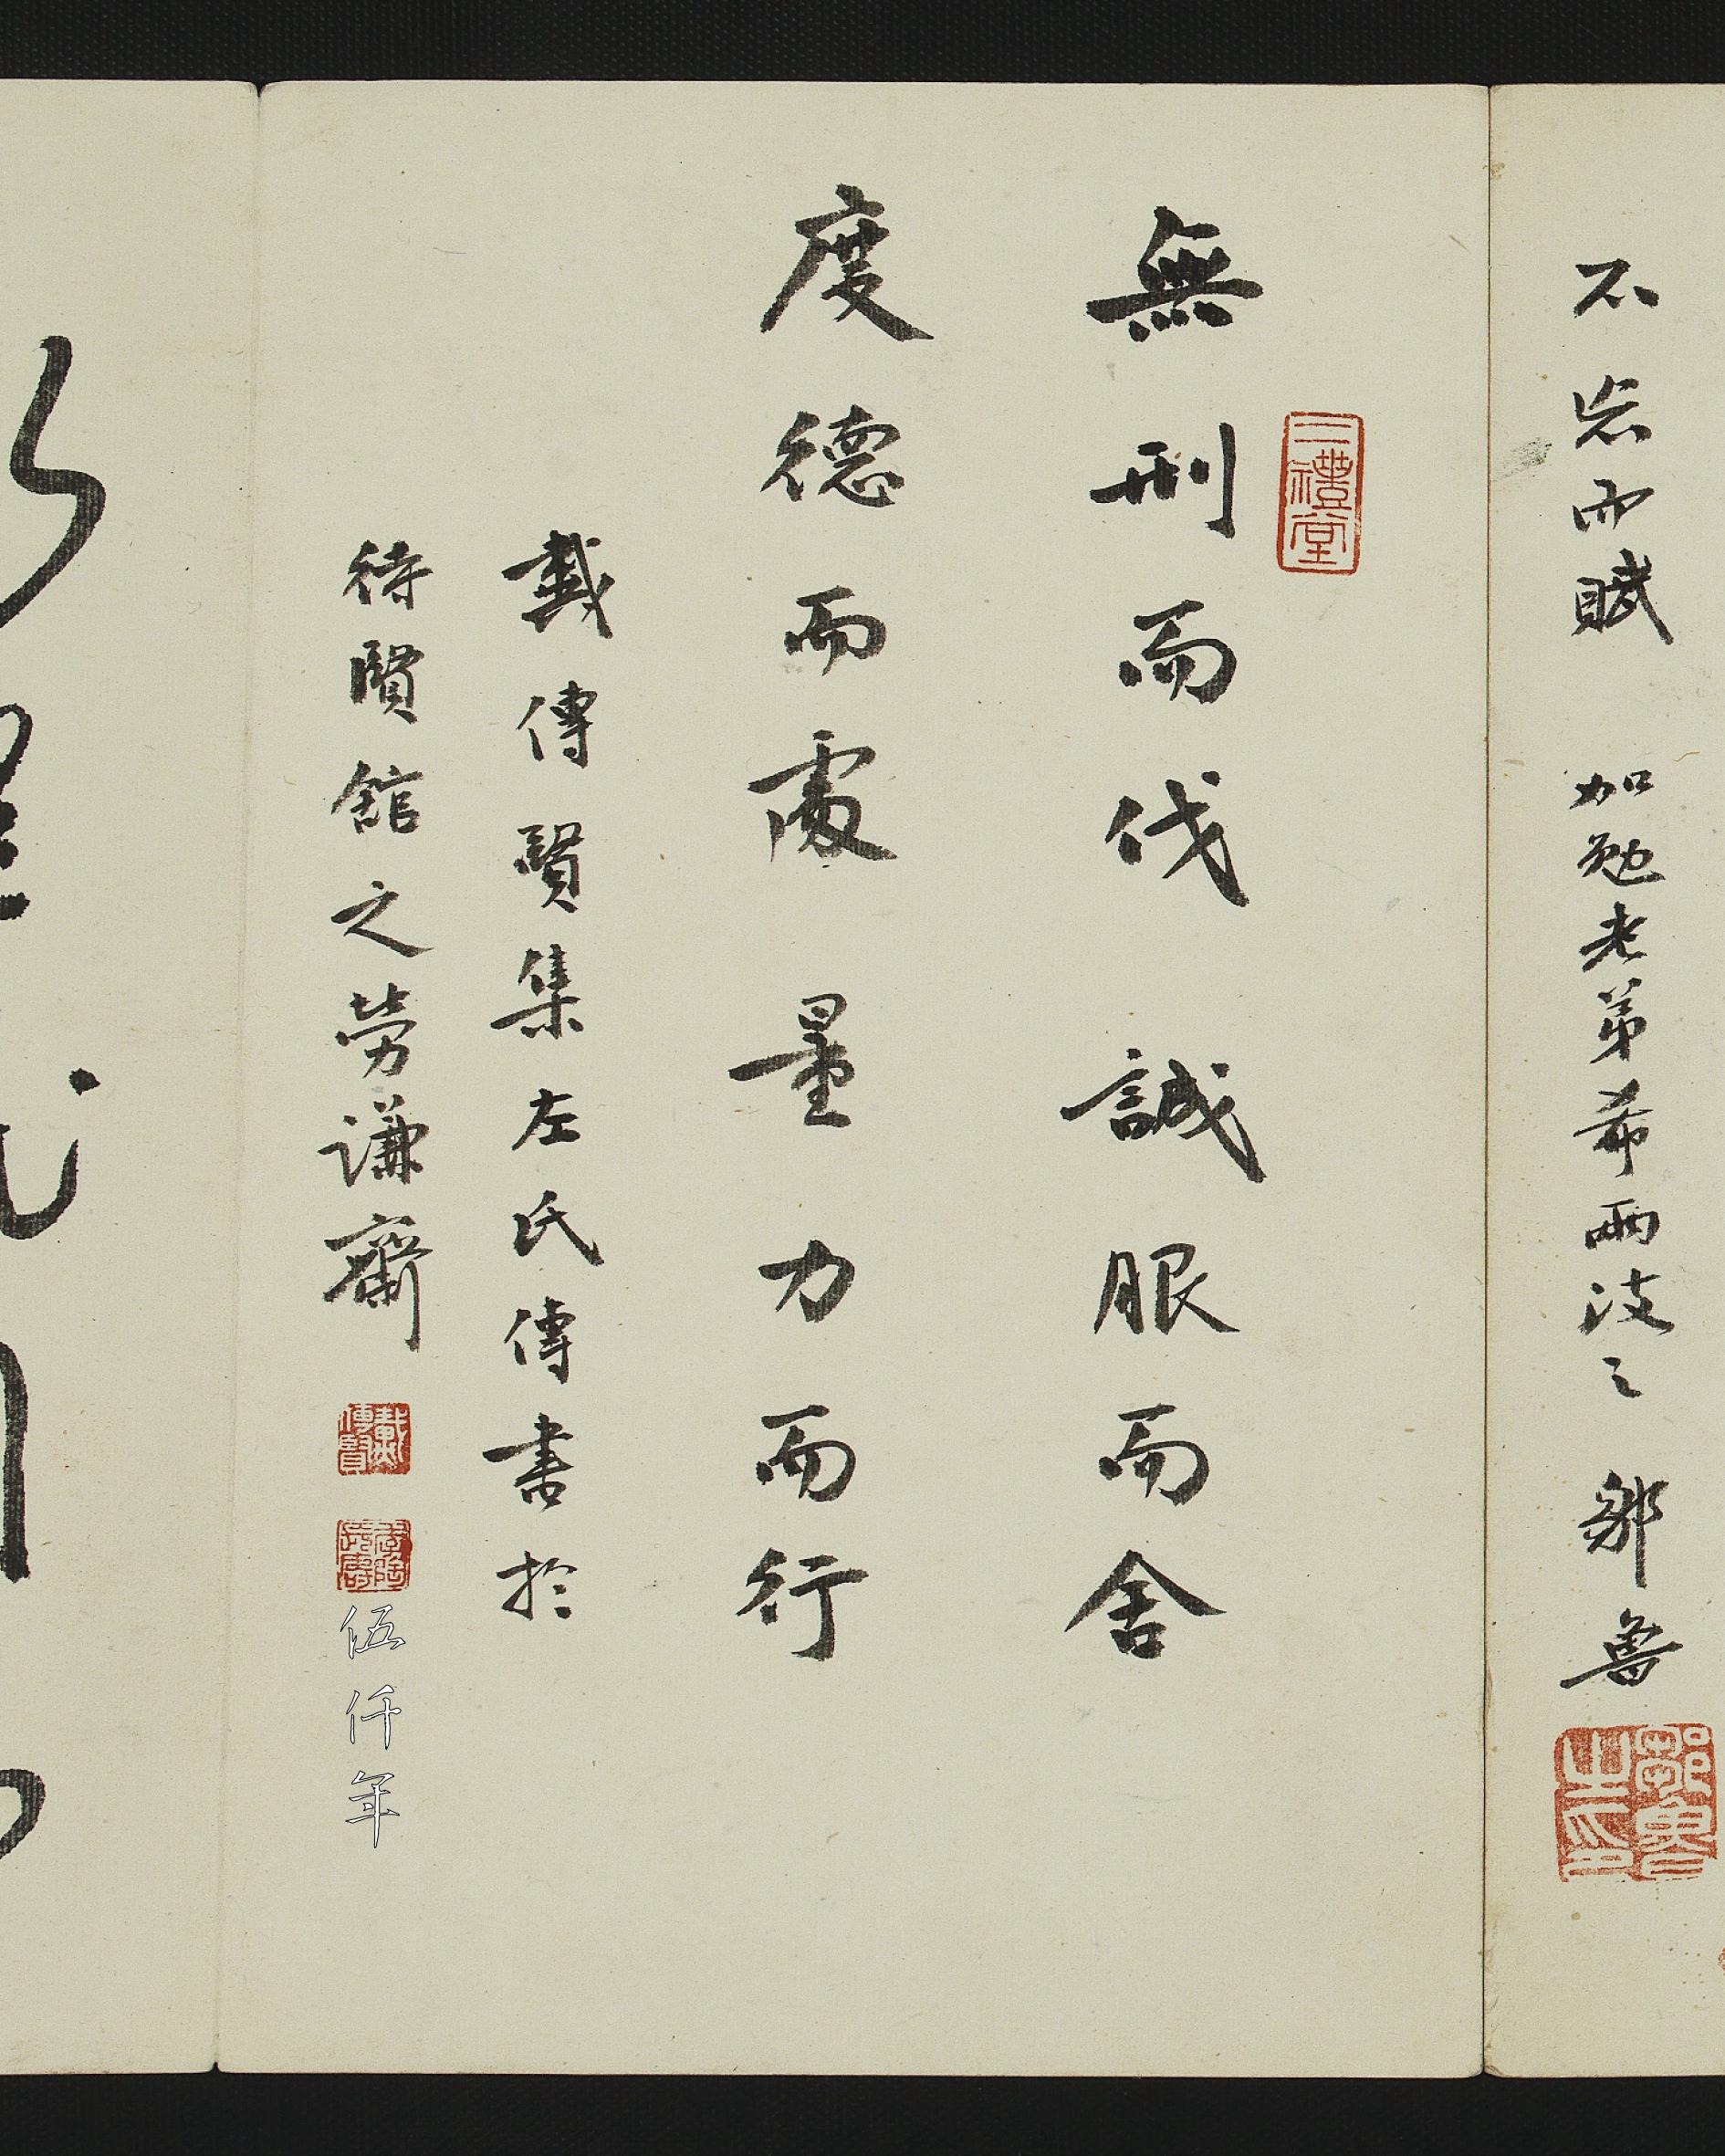 不岩而賦 加勉老弟希兩波之 鄒魯
鄒魯之印
二禮堂
無刑而伐 誠服而舍
度德而處 量力而行
戴傳賢集左氏傳書於
待賢館之勞謙齋
戴傳賢
伍仟年